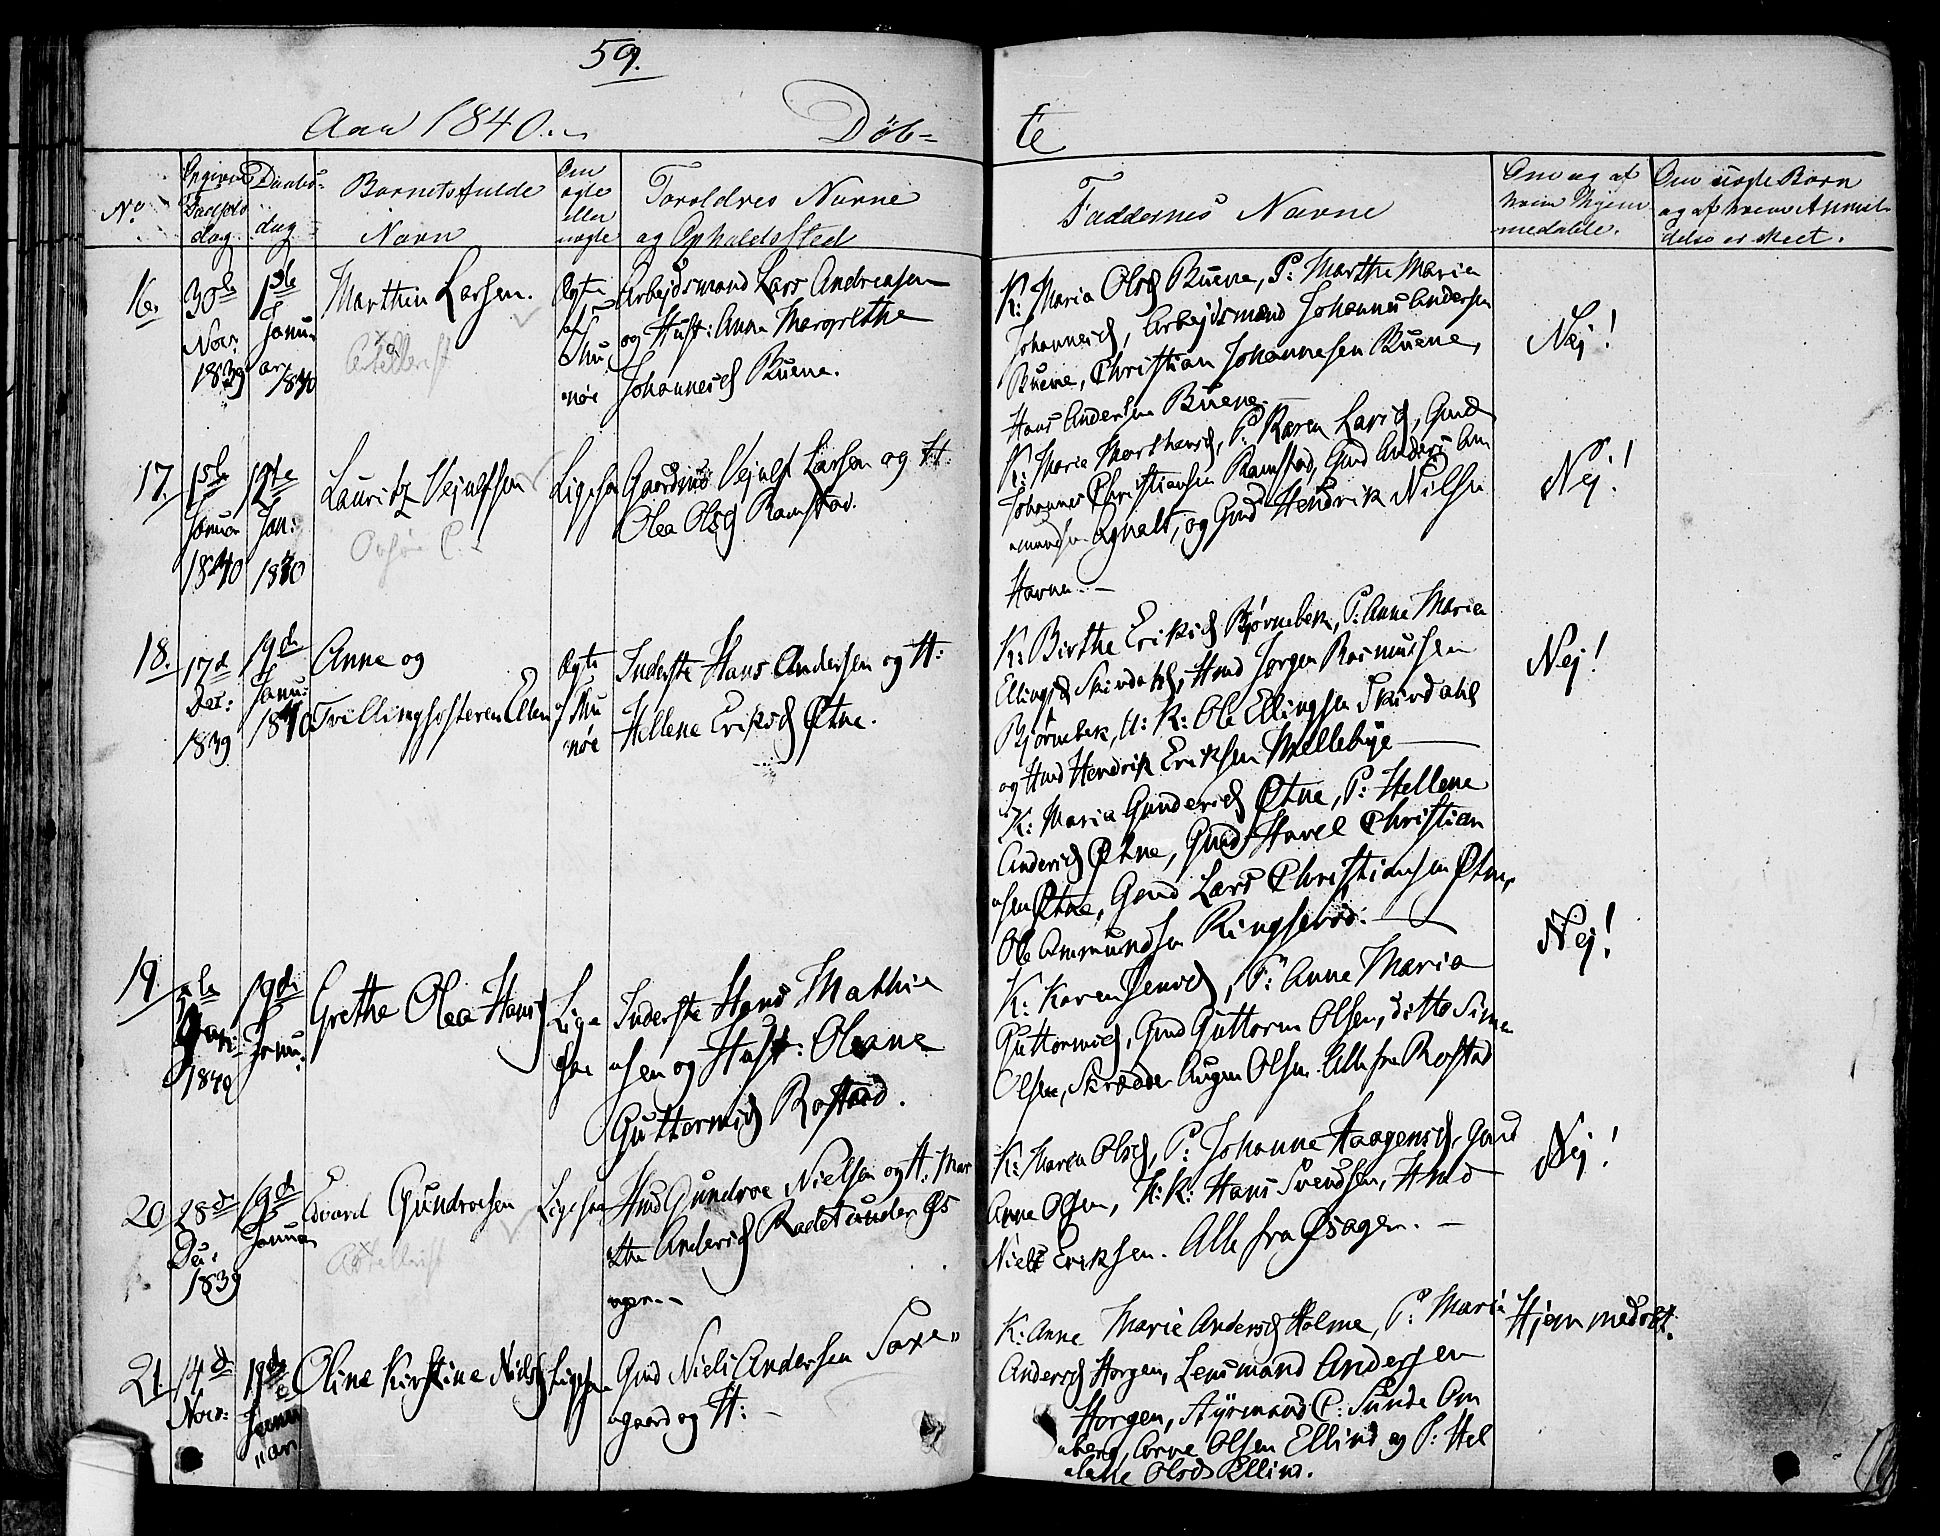 59.
Aar 1840.
Døb=
te
No
Opgiven Fødsels dag.
Daabs- dag
Barnets fulde Navn
Om ægte eller uægte
Forældres Navne
og Opholds Sted
Faddernes Navne
Om og af hvem hjem medøbte.
Om nogle Børn og af hvem Anmeldelse er skeet.
16.
30te Nov: 1839
1ste Januar 1840
Marthin Larsen.
Ægte
Arbejdsmand Lars Andreasen
og Hust: Anne Margrethe
Johannesd Buene.
K: Maria Olsd Buene, P: Marthe Maria
Johannesd, Arbejdsmand Johannes Andersen
Buene, Christian Johannesen Buene,
Hans Andersen Buene.
Nej!
17.
1ste Januar 1840
12te Jan: 1840
Lauritz Vejulfsen
Ligesaa
Gaardmd Vejulf Larsen og H:
Olea Olsd Ramstad.
K: Marie Marthensd, P: Karen Larsd, Gmd
Johannes Christiansen Ramstad, Gmd Anders Am
undsen Agnalt, og Gmd Hendrik Nilsen
Havne.
Nej!
18.
17de Dec: 1839
19de Janu: 1840
Anne og
Tvillingsøsteren Ellen
Ægte
Inderste Hans Andersen og H:
Hellene Eriksd Øtne.
K: Birthe Eriksd Bjørnebek, P: Anne Maria
Ellingsd Skirdahl, Hmd Jørgen Rasmussen
Bjørnebek, U: K: Ole Ellingsen Skirdahl
og Hmd Hendrik Eriksen Mellebye
K: Maria Gundersd Øtne, P: Hellene
Andersd Øtne, Gmd Havel Christian
sen Øtne, Gmd Lars Christiansen Øtne,
Ole Ammundsen Ringherød.
Nej!
19.
Jan: 1840
19de Janu:
Grethe Olea Hansd
Lige saa
Inderste Hans Mathia
sen og Hust: Oleane
Guttormsd Rostad.
K: Karen Jensd, P: Anne Maria
Guttormsd, Gmd Guttorm Olsen, ditto Simen
Olsen, Skrædder Augen Olsen. Alle fra Rostad
Nej!
20
28de Dec: 1839
19de Januar
Edvard Gundroesen
Ligesaa
Hmd Gundroe Nielsen og H. Mar
the Andersd Radet under Øs
ager.
K: Maren Olsd, P: Johanne Haagensd, Gmd
Arne Olsen, U: K: Hans Svendsen, Hmd
Niels Eriksen. Alle fra Øsager.
Nej!
21
14de Nov:
19de Januar
Oline Kirstine Nilsd
Ligesaa
Gmd Niels Andersen Saxe
gaard og H:
K: Anne Marie Andersd Holme, P: Maria
Andersd Horgen, Lensmand Andersen
Horgen, Styrmand C: Sunde Om
berg, Arne Olsen Ellind og P: Hel
lene Olsd Ellind.
Hjemmedøbt.